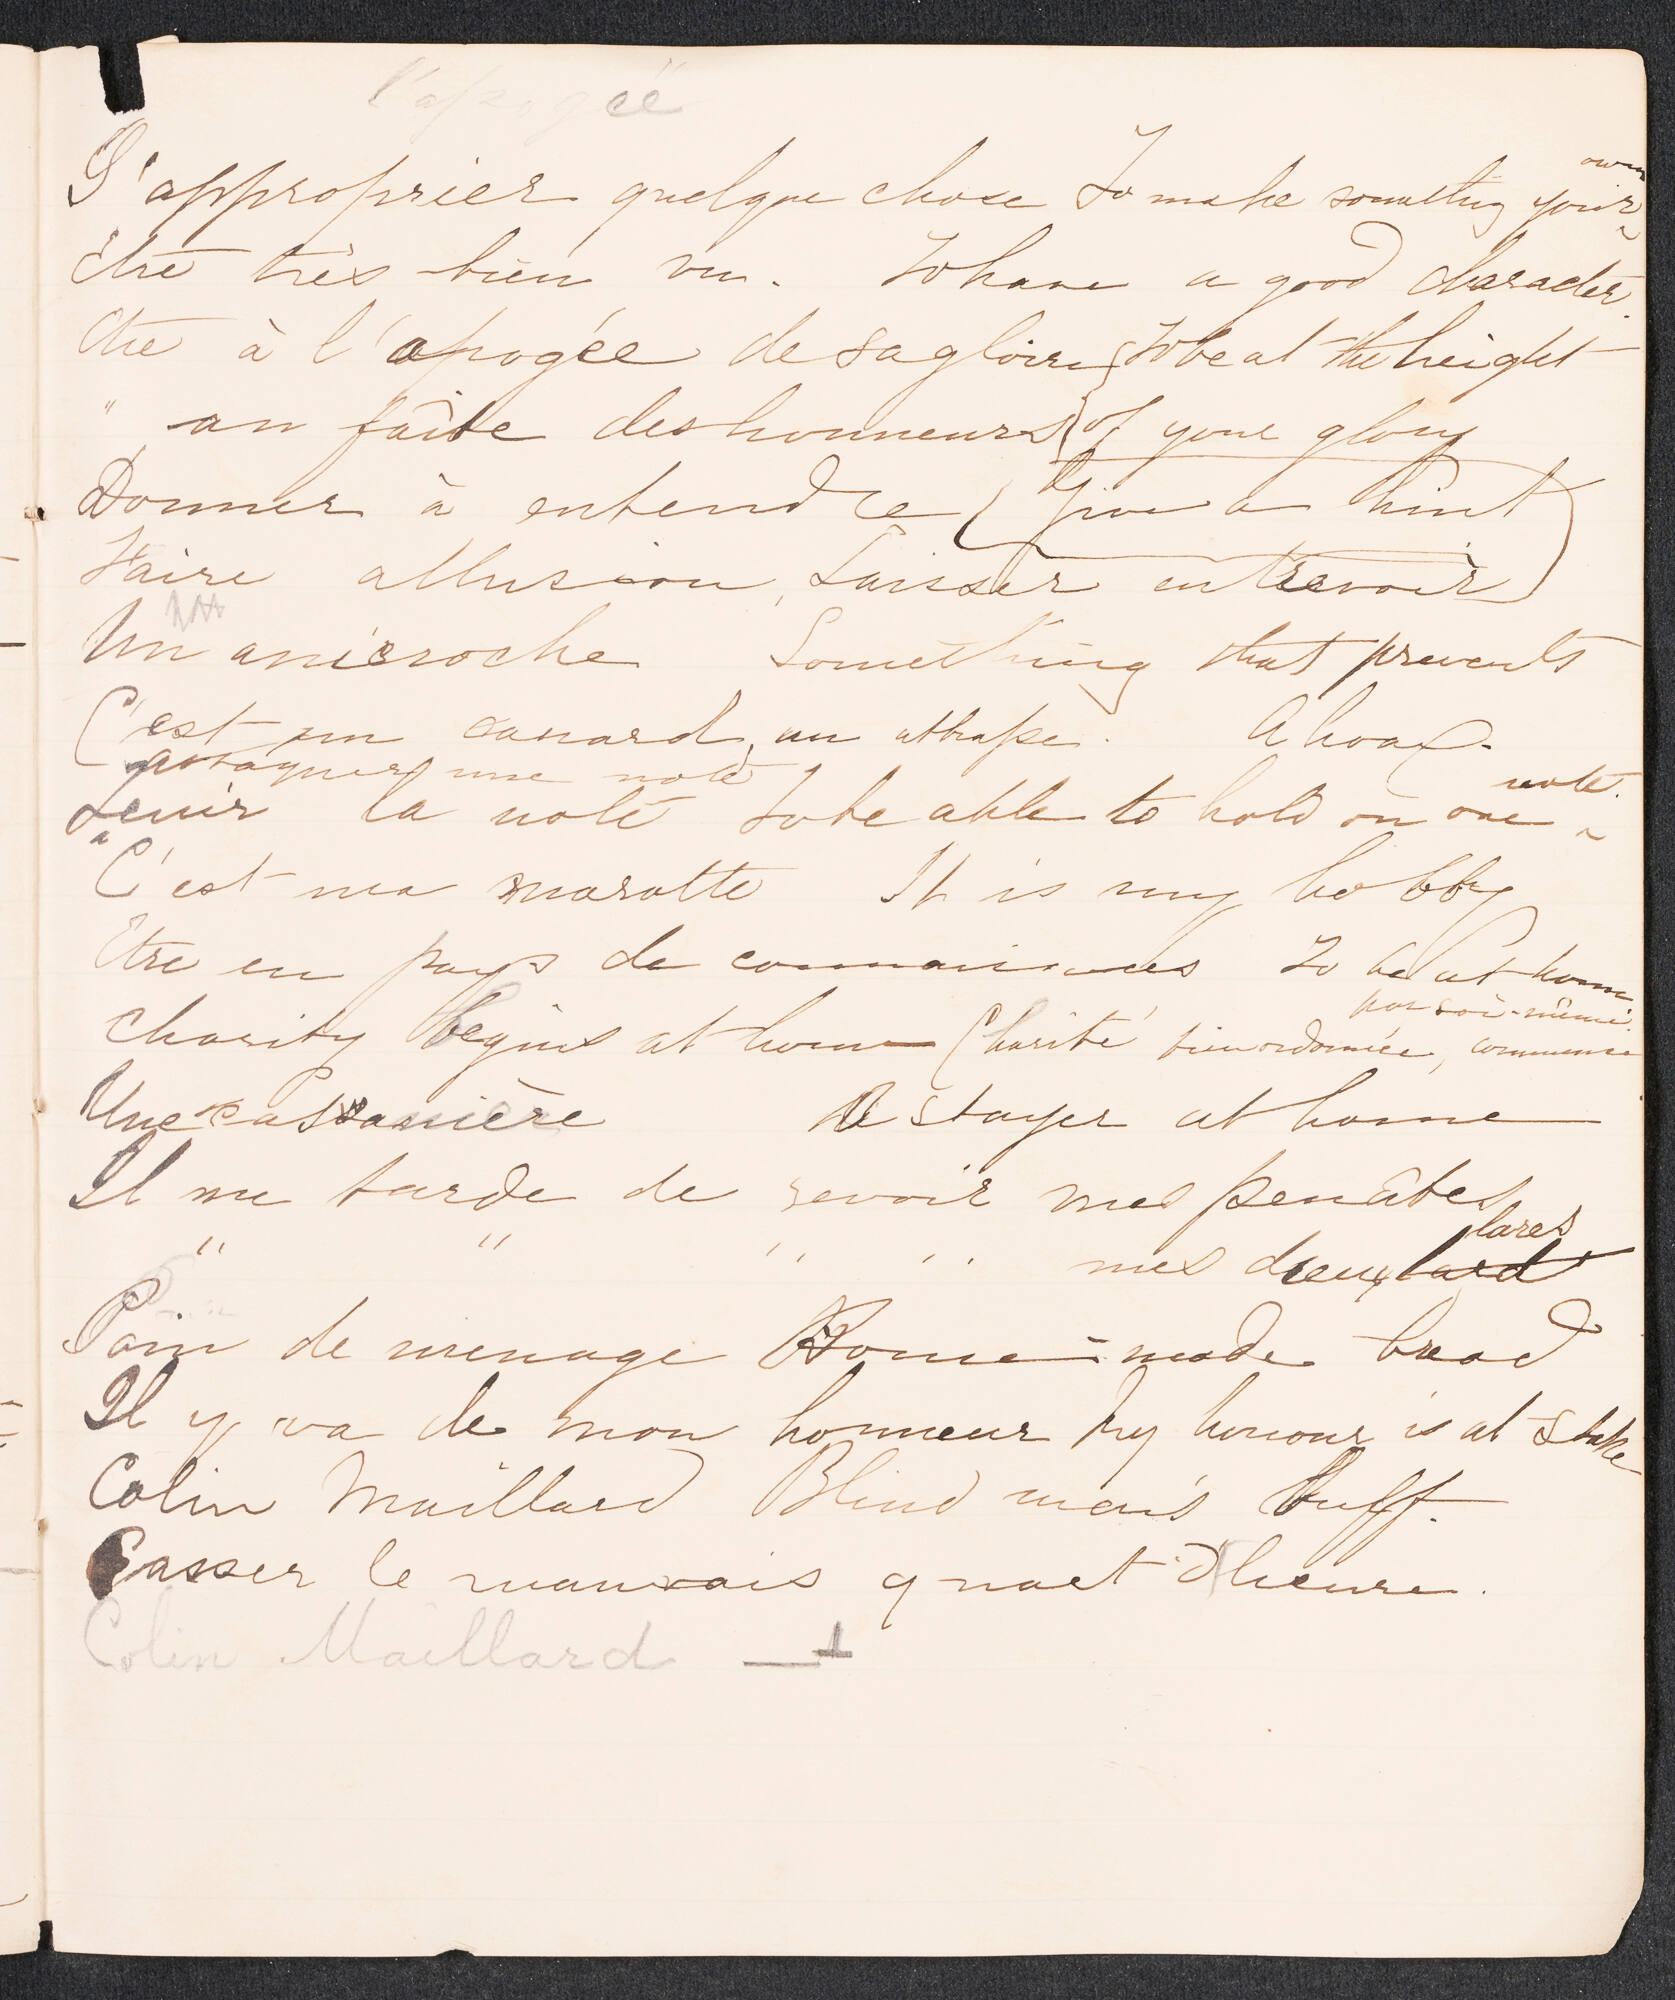 l'apogée
S'approprier quelque chose To make something your own
Etre très bien vu. To have a good character.
Etre à l'apogée de sa gloire { To be at the height
" au faîte des honneurs { of your glory
Donner à entendre ( Give a hint
Faire allusion, Laisser entrevoir )
Un anicroche Something that prevents
C'est un canard, un attrape. A hoax.
une note
Tenir la note To be able to hold on one note.
C'est ma marotte It is my hobby
Etre en pays de connaissances To be at home
Charity begins at home Charité bien ordonnée, commence par soi-même.
Une casanière A stayer at home
Il me tarde de revoir mes penâtes
" " " " mes dieux lard lares
Pain de menage Home-made bread
Il y va de mon honneur My honour is at stake
Colin Maillard Blind man's buff.
Passer le mauvais quart d'heure.
Colin Maillard